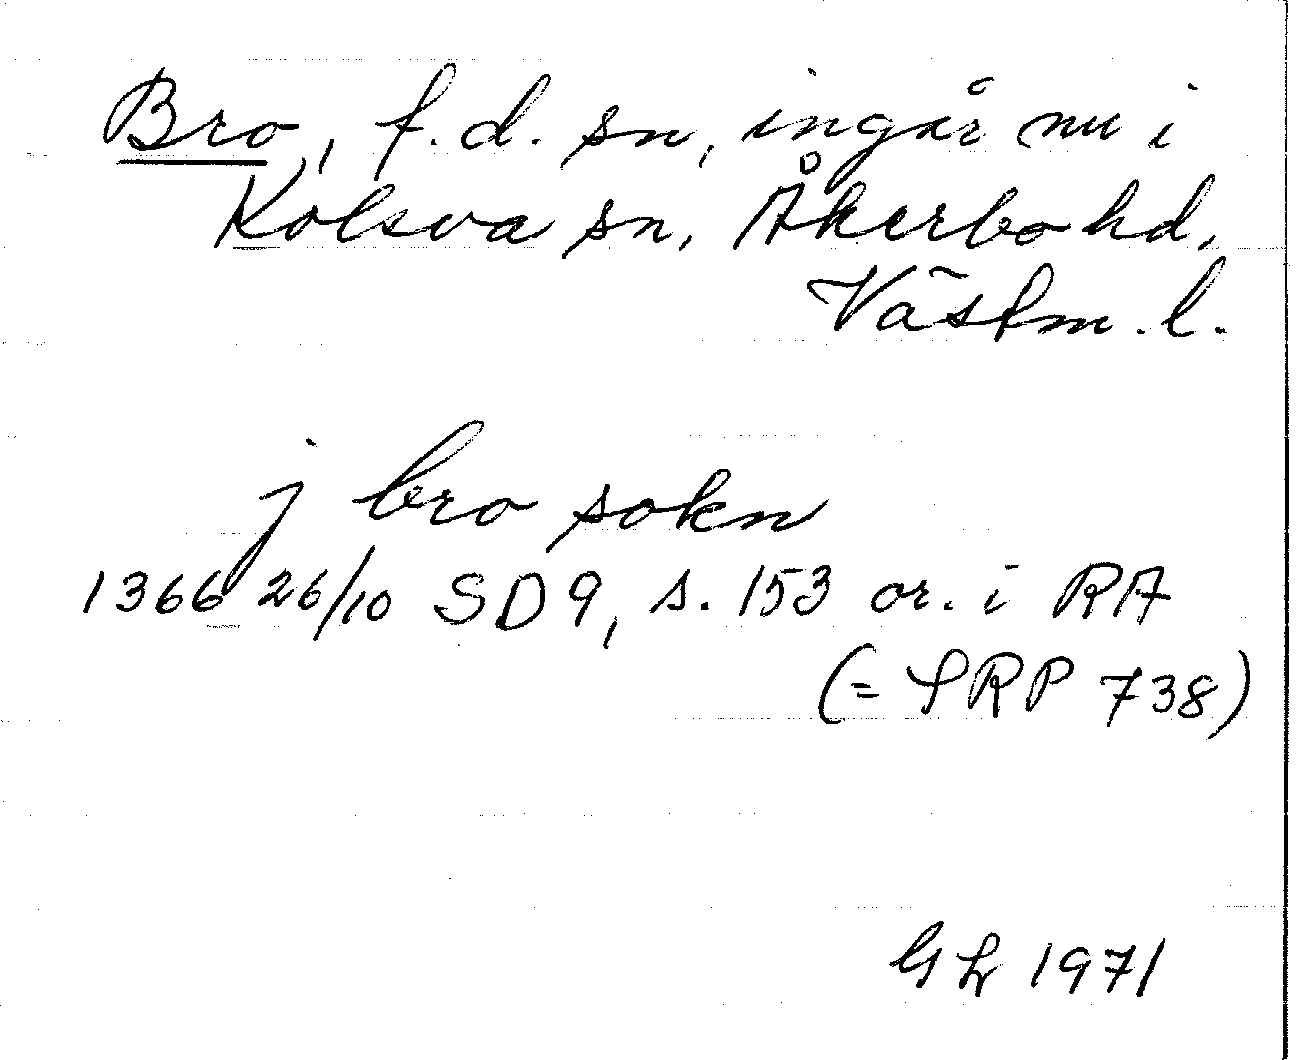 Bro, f.d. sn, ingår nu i
Kolsva sn, Åkerbo hd,
Västm. l.
j bro sokn
1366 26/10 SD 9, s. 153 or. i RA
(= SRP 738)
1971